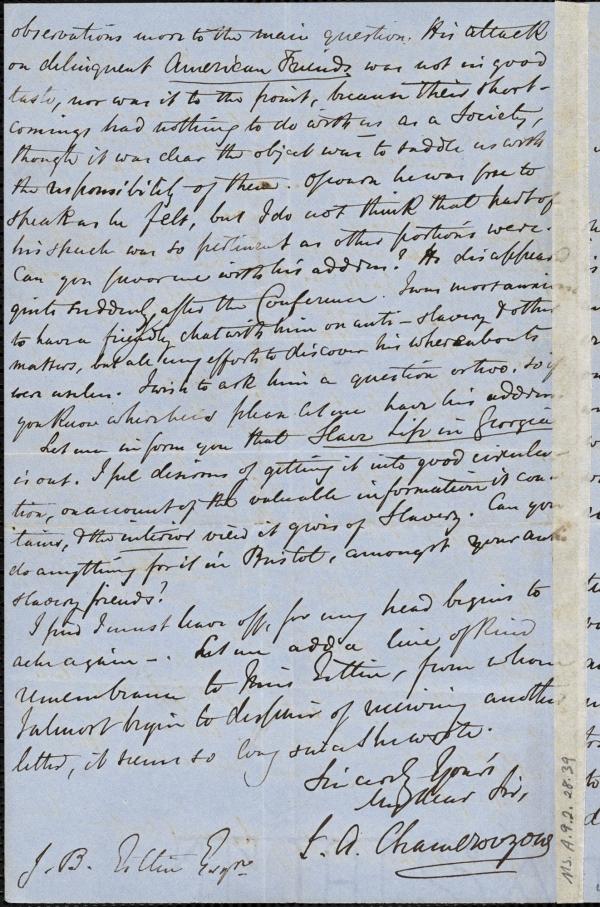 observations more to the main question. His attack
on delinquent American Friends was not in good
taste, nor was it to the point, because their short-
comings had nothing to do with us as a Society,
though it was clear the object was to saddle us with
the responsibility of them. Of course he was free to
speak as he felt, but I do not think that part of
his speech was so pertinent as other portions were.
Can you favor me with his address? He disappeared
quite suddenly after the Conference. I was most anxious
to have a friendly chat with him on anti-slavery & other
matters, but all my efforts to discover his whereabouts
were useless. I wish to ask him a question or two, so if
you know where he is please let me have his address.
Let me inform you that Slave Life in Georgia
is out. I feel desirous of getting it into good circula-
tion, on account of the valuable information it con-
tains, & the interior view it gives of Slavery. Can you
do anything for it in Bristol, amongst your anti
slavery friends?
I find I must leave off, for my head begins to
ache again -. Let me add a line of kind
remembrance to Miss Estlin, from whom
I almost begin to despair of receiving another
letter, it seems so long since she wrote.
Sincerely Yours
My dear Sir,
L. A. Chamerovzow
J. B. Estlin Esqre
MS. A.9.2. 28.39